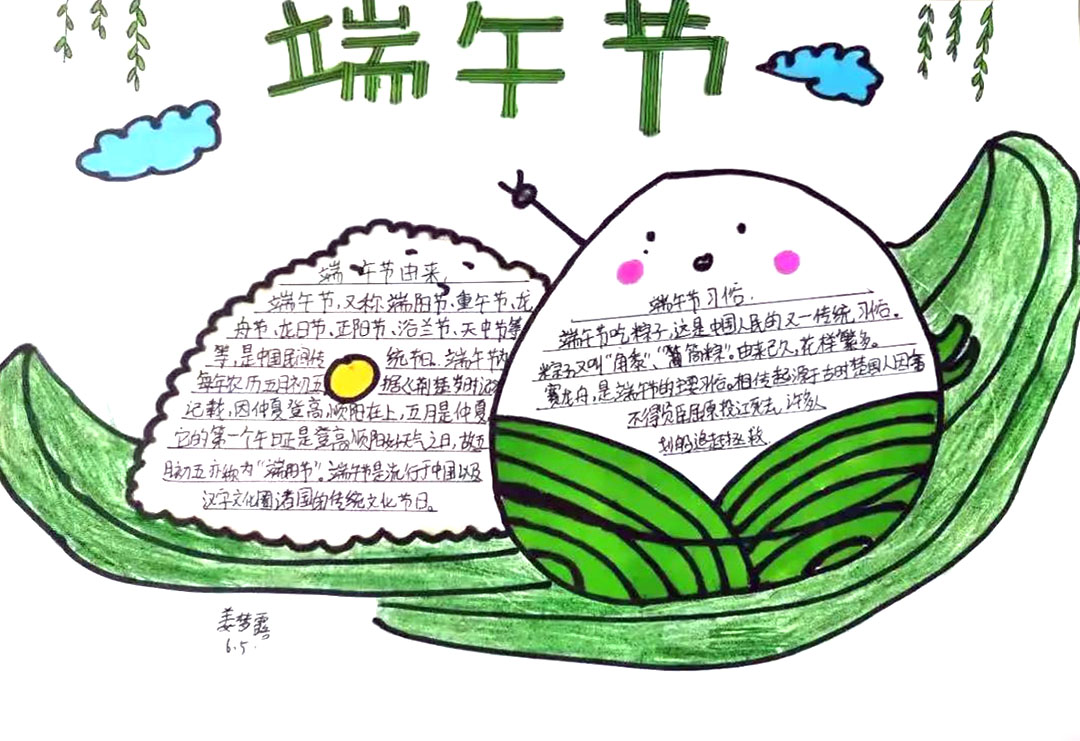 端午节
端午节由来
端午节,又称端阳节、重午节、龙
舟节、龙日节、正阳节、浴兰节、天中节等
等,是中国民间传 统节日。端午节
每年农历五月初五 据《荆楚岁时记
记载,因仲夏登高,顺阳在上,五月是仲夏
它的第一个午日正是登高顺阳好天气之日,故五
月初五亦称为“端阳节”。端午节是流行于中国以及
汉字文化圈诸国的传统文化节日。
端午节习俗.
端午节吃粽子,这是中国人民的又一传统习俗。
粽子又叫“角黍”、“筒粽”。由来已久,花样繁多。
赛龙舟,是端午节的主要习俗。相传起源于古时楚国人因
不得贤臣屈原投江死去,许多人
划船追赶拯救.
姜梦露
6.5.